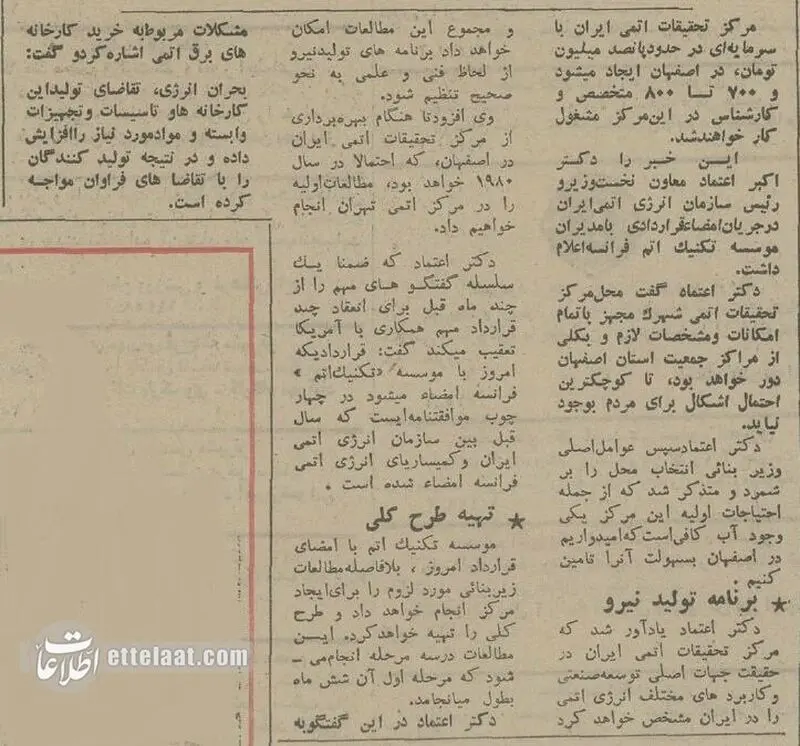 مرکز تحقیقات اتمی ایران با
سرمایه‌ای در حدودپانصد میلیون
تومان، در اصفهان ایجاد میشود
و ۷۰۰ تا ۸۰۰ متخصص و
کارشناس در این‌مرکز مشغول
کار خواهندشد.
این خبر را دکتر
اکبر اعتماد معاون نخست‌وزیرو
رئیس سازمان انرژی اتمی‌ایران
درجریان‌امضاءقراردادی بامدیران
موسسه تکنیك اتم فرانسه‌اعلام
داشت.
دکتر اعتماد گفت محل‌مرکز
تحقیقات اتمی شهرك مجهز باتمام
امکانات ومشخصات لازم و بکلی
از مراکز جمعیت استان اصفهان
دور خواهد بود، تا کوچکترین
احتمال اشکال برای مردم بوجود
نیاید.
دکتر اعتمادسپس عوامل‌اصلی
وزیر بنائی انتخاب محل را بر
شمرد و متذکر شد که از جمله
احتیاجات اولیه این مرکز یکی
وجود آب کافی‌است‌که‌امیدواریم
در اصفهان بسهولت آنرا تامین
کنیم.
★ برنامه تولید نیرو
دکتر اعتماد یادآور شد که
مرکز تحقیقات اتمی ایران در
حقیقت جهات اصلی توسعه‌صنعتی
وکاربرد های مختلف انرژی اتمی
را در ایران مشخص خواهد کرد
و مجموع این مطالعات امکان
خواهد داد برنامه های تولیدنیرو
از لحاظ فنی و علمی به نحو
صحیح تنظیم شود.
وی افزودتا هنگام بهره‌برداری
از مرکز تحقیقات اتمی ایران
در اصفهان، که احتمالا در سال
۱۹۸۰ خواهد بود، مطالعات‌اولیه
را در مرکز اتمی تهران انجام
خواهیم داد.
دکتر اعتماد که ضمنا یك
سلسله گفتگو های مهم را از
چند ماه قبل برای انعقاد چند
قرارداد مهم همکاری با آمریکا
تعقیب میکند گفت: قراردادیکه
امروز با موسسه «تکنیك‌اتم»
فرانسه امضاء میشود در چهار
چوب موافقتنامه‌ایست که سال
قبل بین سازمان انرژی اتمی
ایران وکمیساریای انرژی اتمی
فرانسه امضاء شده است.
★ تهیه طرح کلی
موسسه تکنیك اتم با امضای
قرارداد امروز، بلافاصله‌مطالعات
زیربنائی مورد لزوم را برای‌ایجاد
مرکز انجام خواهد داد و طرح
کلی را تهیه خواهدکرد. این
مطالعات درسه مرحله انجام‌می ـ
شود که مرحله اول آن شش ماه
بطول میانجامد.
دکتر اعتماد در این گفتگوبه
مشکلات مربوطبه خرید کارخانه
های برق اتمی اشاره‌کردو گفت:
بحران انرژی، تقاضای تولیداین
کارخانه هاو تاسیسات وتجهیزات
وابسته و موادمورد نیاز راافزایش
داده و در نتیجه تولید کنندگان
را با تقاضا های فراوان مواجه
کرده است.
اطلاعات ettelaat.com